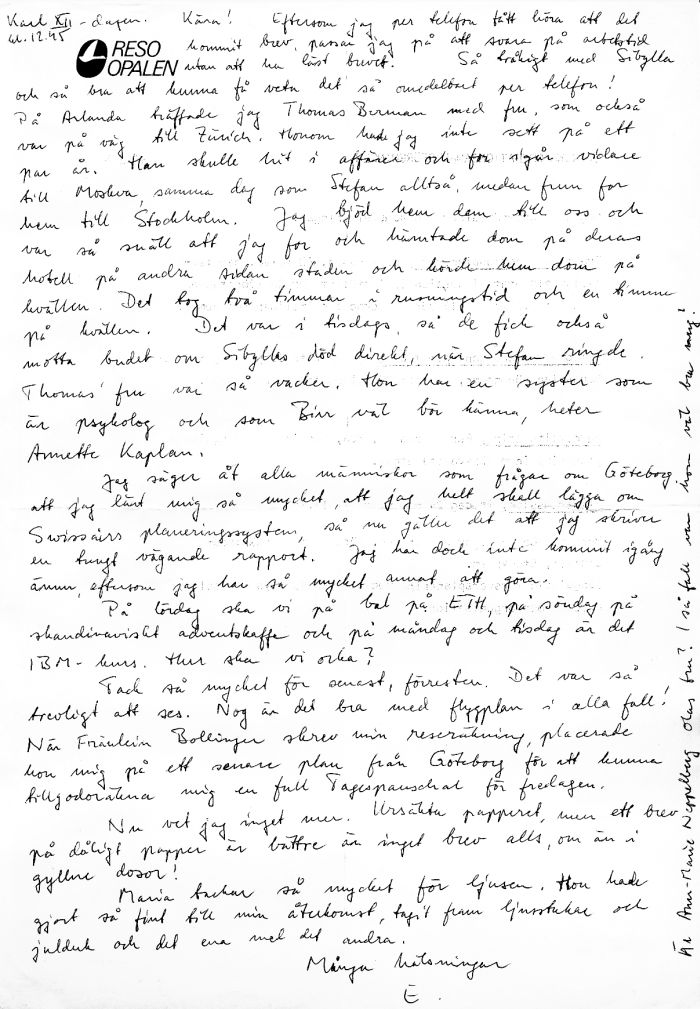 Karl XII - dagen. Kära! Eftersom jag per telefon fått höra att det
kl. 12.45
RESO
OPALEN
kommit brev, passar jag på att svara på arbetstid
utan att ha läst brevet. Så tråkigt med Sibylla
och så bra att kunna få veta det så omedelbart per telefon!
På Arlanda träffade jag Thomas Berman med fru, som också
var på väg till Zürich. Honom hade jag inte sett på ett
par år. Han skulle hit i affärer och for igår vidare
till Moskva, samma dag som Stefan alltså, medan frun for
hem till Stockholm. Jag bjöd hem dem till oss och
var så snäll att jag for och hämtade dom på deras
hotell på andra sidan staden och körde hem dom på
kvällen. Det tog två timmar i rusningstid och en timme
på kvällen. Det var i tisdags, så de fick också
motta budet om Sibyllas död direkt, när Stefan ringde.
Thomas' fru var så vacker. Hon har en syster som
är psykolog och som Birr väl bör känna, heter
Annette Kaplan.
Jag säger åt alla människor som frågar om Göteborg
att jag lärt mig så mycket, att jag helt skall lägga om
Swissairs planeringssystem, så nu gäller det att jag skriver
en tungt vägande rapport. Jag har dock inte kommit igång
ännu, eftersom jag har så mycket annat att göra.
På lördag ska vi på bal på ETH, på söndag på
skandinaviskt adventskaffe och på måndag och tisdag är det
IBM-kurs. Hur ska vi orka?
Tack så mycket för senast, förresten. Det var så
trevligt att ses. Nog är det bra med flygplan i alla fall!
När Fräulein Bollinger skrev min reseräkning, placerade
hon mig på ett senare plan från Göteborg för att kunna
tillgodoräkna mig en full Tagespauschal för fredagen.
Nu vet jag inget mer. Ursäkta papperet, men ett brev
på dåligt papper är bättre än inget brev alls, om än i
gyllne dosor!
Maria tackar så mycket för ljusen. Hon hade
gjort så fint till min återkomst, tagit fram ljusstakar och
julduk och det ena med det andra.
Många hälsningar
E.
Är Ann-Marie Neppelberg Olas fru? I så fall var hon väl bra mig!